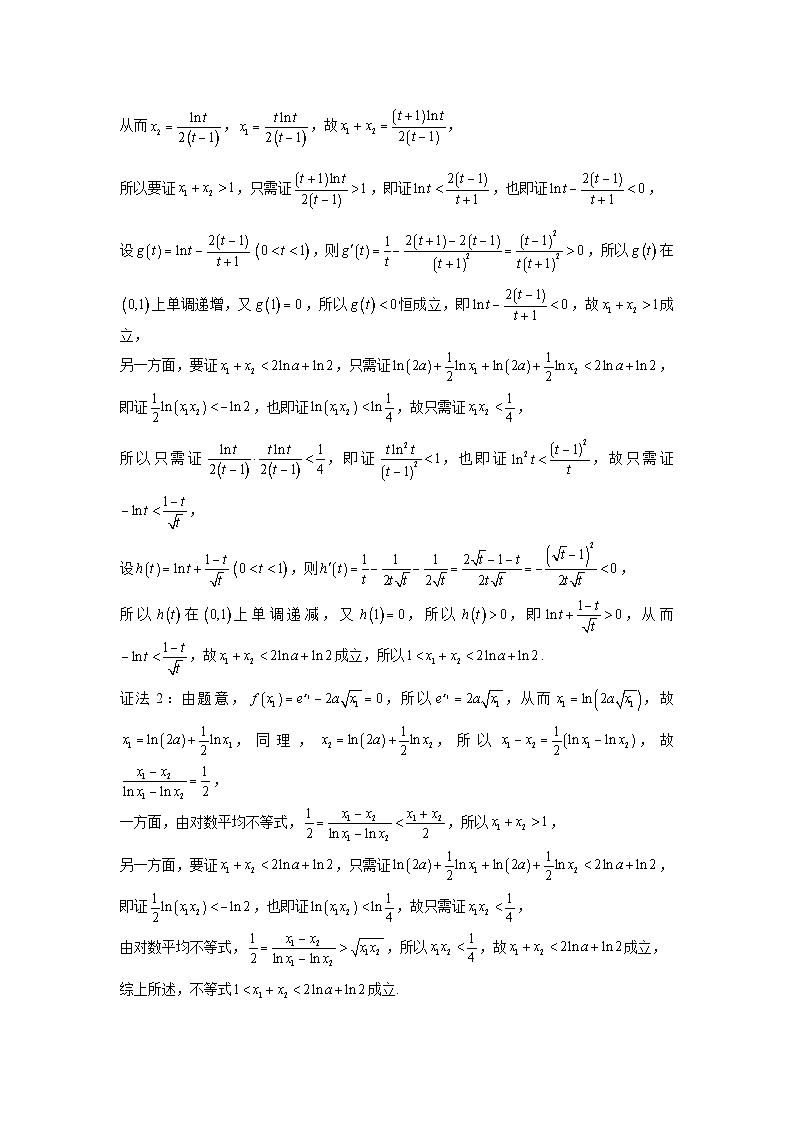 从而 $x_2=\frac{\ln t}{2(t-1)}$，$x_1=\frac{t\ln t}{2(t-1)}$，故 $x_1+x_2=\frac{(t+1)\ln t}{2(t-1)}$，
所以要证 $x_1+x_2>1$，只需证 $\frac{(t+1)\ln t}{2(t-1)}>1$，即证 $\ln t<\frac{2(t-1)}{t+1}$，也即证 $\ln t-\frac{2(t-1)}{t+1}<0$，
设 $g(t)=\ln t-\frac{2(t-1)}{t+1}$ $(0<t<1)$，则 $g'(t)=\frac{1}{t}-\frac{2(t+1)-2(t-1)}{(t+1)^2}=\frac{(t-1)^2}{t(t+1)^2}>0$，所以 $g(t)$ 在
$(0,1)$ 上单调递增，又 $g(1)=0$，所以 $g(t)<0$ 恒成立，即 $\ln t-\frac{2(t-1)}{t+1}<0$，故 $x_1+x_2>1$ 成
立，
另一方面，要证 $x_1+x_2<2\ln a+\ln 2$，只需证 $\ln(2a)+\frac{1}{2}\ln x_1+\ln(2a)+\frac{1}{2}\ln x_2<2\ln a+\ln 2$，
即证 $\frac{1}{2}\ln(x_1x_2)<-\ln 2$，也即证 $\ln(x_1x_2)<\ln\frac{1}{4}$，故只需证 $x_1x_2<\frac{1}{4}$，
所以只需证 $\frac{\ln t}{2(t-1)}\cdot\frac{t\ln t}{2(t-1)}<\frac{1}{4}$，即证 $\frac{t\ln^2 t}{(t-1)^2}<1$，也即证 $\ln^2 t<\frac{(t-1)^2}{t}$，故只需证
$-\ln t<\frac{1-t}{\sqrt{t}}$，
设 $h(t)=\ln t+\frac{1-t}{\sqrt{t}}$ $(0<t<1)$，则 $h'(t)=\frac{1}{t}-\frac{1}{2t\sqrt{t}}-\frac{1}{2\sqrt{t}}=\frac{2\sqrt{t}-1-t}{2t\sqrt{t}}=-\frac{(\sqrt{t}-1)^2}{2t\sqrt{t}}<0$，
所以 $h(t)$ 在 $(0,1)$ 上单调递减，又 $h(1)=0$，所以 $h(t)>0$，即 $\ln t+\frac{1-t}{\sqrt{t}}>0$，从而
$-\ln t<\frac{1-t}{\sqrt{t}}$，故 $x_1+x_2<2\ln a+\ln 2$ 成立，所以 $1<x_1+x_2<2\ln a+\ln 2$．
证法 2：由题意，$f(x_1)=e^{x_1}-2a\sqrt{x_1}=0$，所以 $e^{x_1}=2a\sqrt{x_1}$，从而 $x_1=\ln(2a\sqrt{x_1})$，故
$x_1=\ln(2a)+\frac{1}{2}\ln x_1$，同理，$x_2=\ln(2a)+\frac{1}{2}\ln x_2$，所以 $x_1-x_2=\frac{1}{2}(\ln x_1-\ln x_2)$，故
$\frac{x_1-x_2}{\ln x_1-\ln x_2}=\frac{1}{2}$，
一方面，由对数平均不等式，$\frac{1}{2}=\frac{x_1-x_2}{\ln x_1-\ln x_2}<\frac{x_1+x_2}{2}$，所以 $x_1+x_2>1$，
另一方面，要证 $x_1+x_2<2\ln a+\ln 2$，只需证 $\ln(2a)+\frac{1}{2}\ln x_1+\ln(2a)+\frac{1}{2}\ln x_2<2\ln a+\ln 2$，
即证 $\frac{1}{2}\ln(x_1x_2)<-\ln 2$，也即证 $\ln(x_1x_2)<\ln\frac{1}{4}$，故只需证 $x_1x_2<\frac{1}{4}$，
由对数平均不等式，$\frac{1}{2}=\frac{x_1-x_2}{\ln x_1-\ln x_2}>\sqrt{x_1x_2}$，所以 $x_1x_2<\frac{1}{4}$，故 $x_1+x_2<2\ln a+\ln 2$ 成立，
综上所述，不等式 $1<x_1+x_2<2\ln a+\ln 2$ 成立．